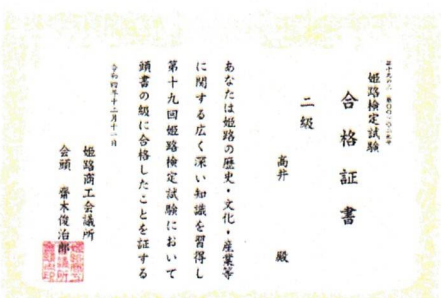 姫路検定試験
合格証書
二級
高井 殿
あなたは姫路の歴史・文化・産業等
に関する広く深い知識を習得し
第十九回姫路検定試験において
頭書の級に合格したことを証する
姫路商工会議所
会頭 齋木俊治郎